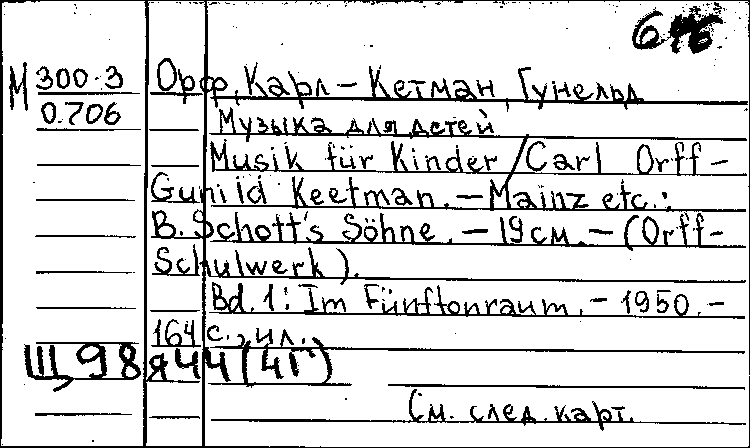 М 300-3 Орф, Карл - Кетман, Гунельд
0.706 Музыка для детей
Musik für Kinder / Carl Orff -
Gunild Keetman. - Mainz etc.:
B. Schott's Söhne. - 19 см. - (Orff-
Schulwerk).
Bd. 1: Im Fünftonraum. - 1950. -
164 с., ил.
Щ98я44(4Г)
См. след. карт.